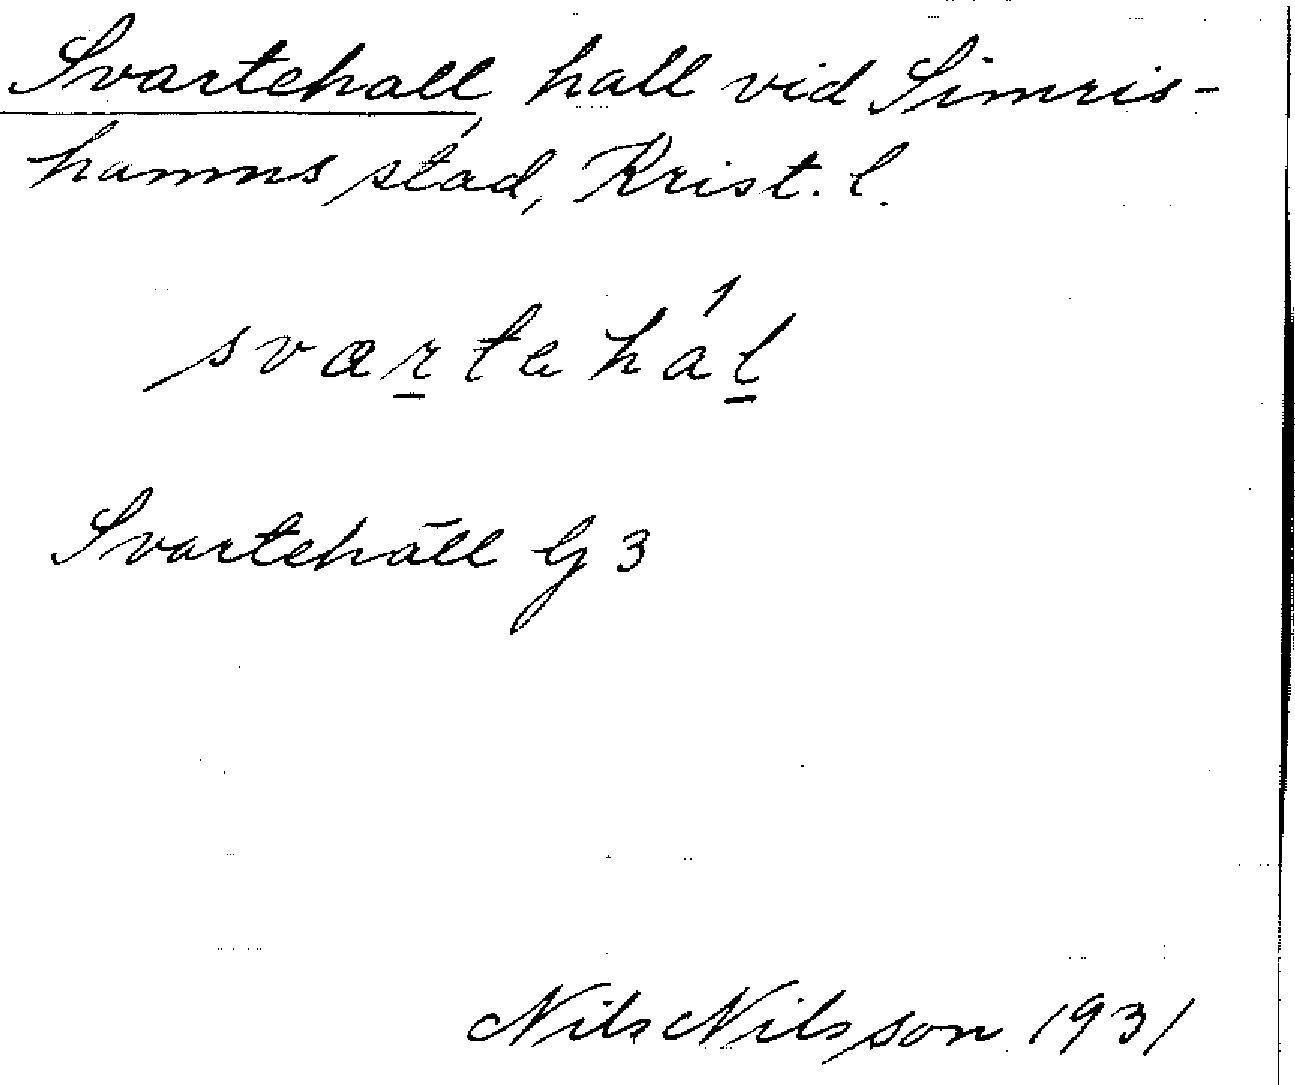 Svartehall, hall vid Simris-
hamns stad, Krist. l.
svært̲ehál̲
Svartehäll G 3
Nils Nilsson 1931